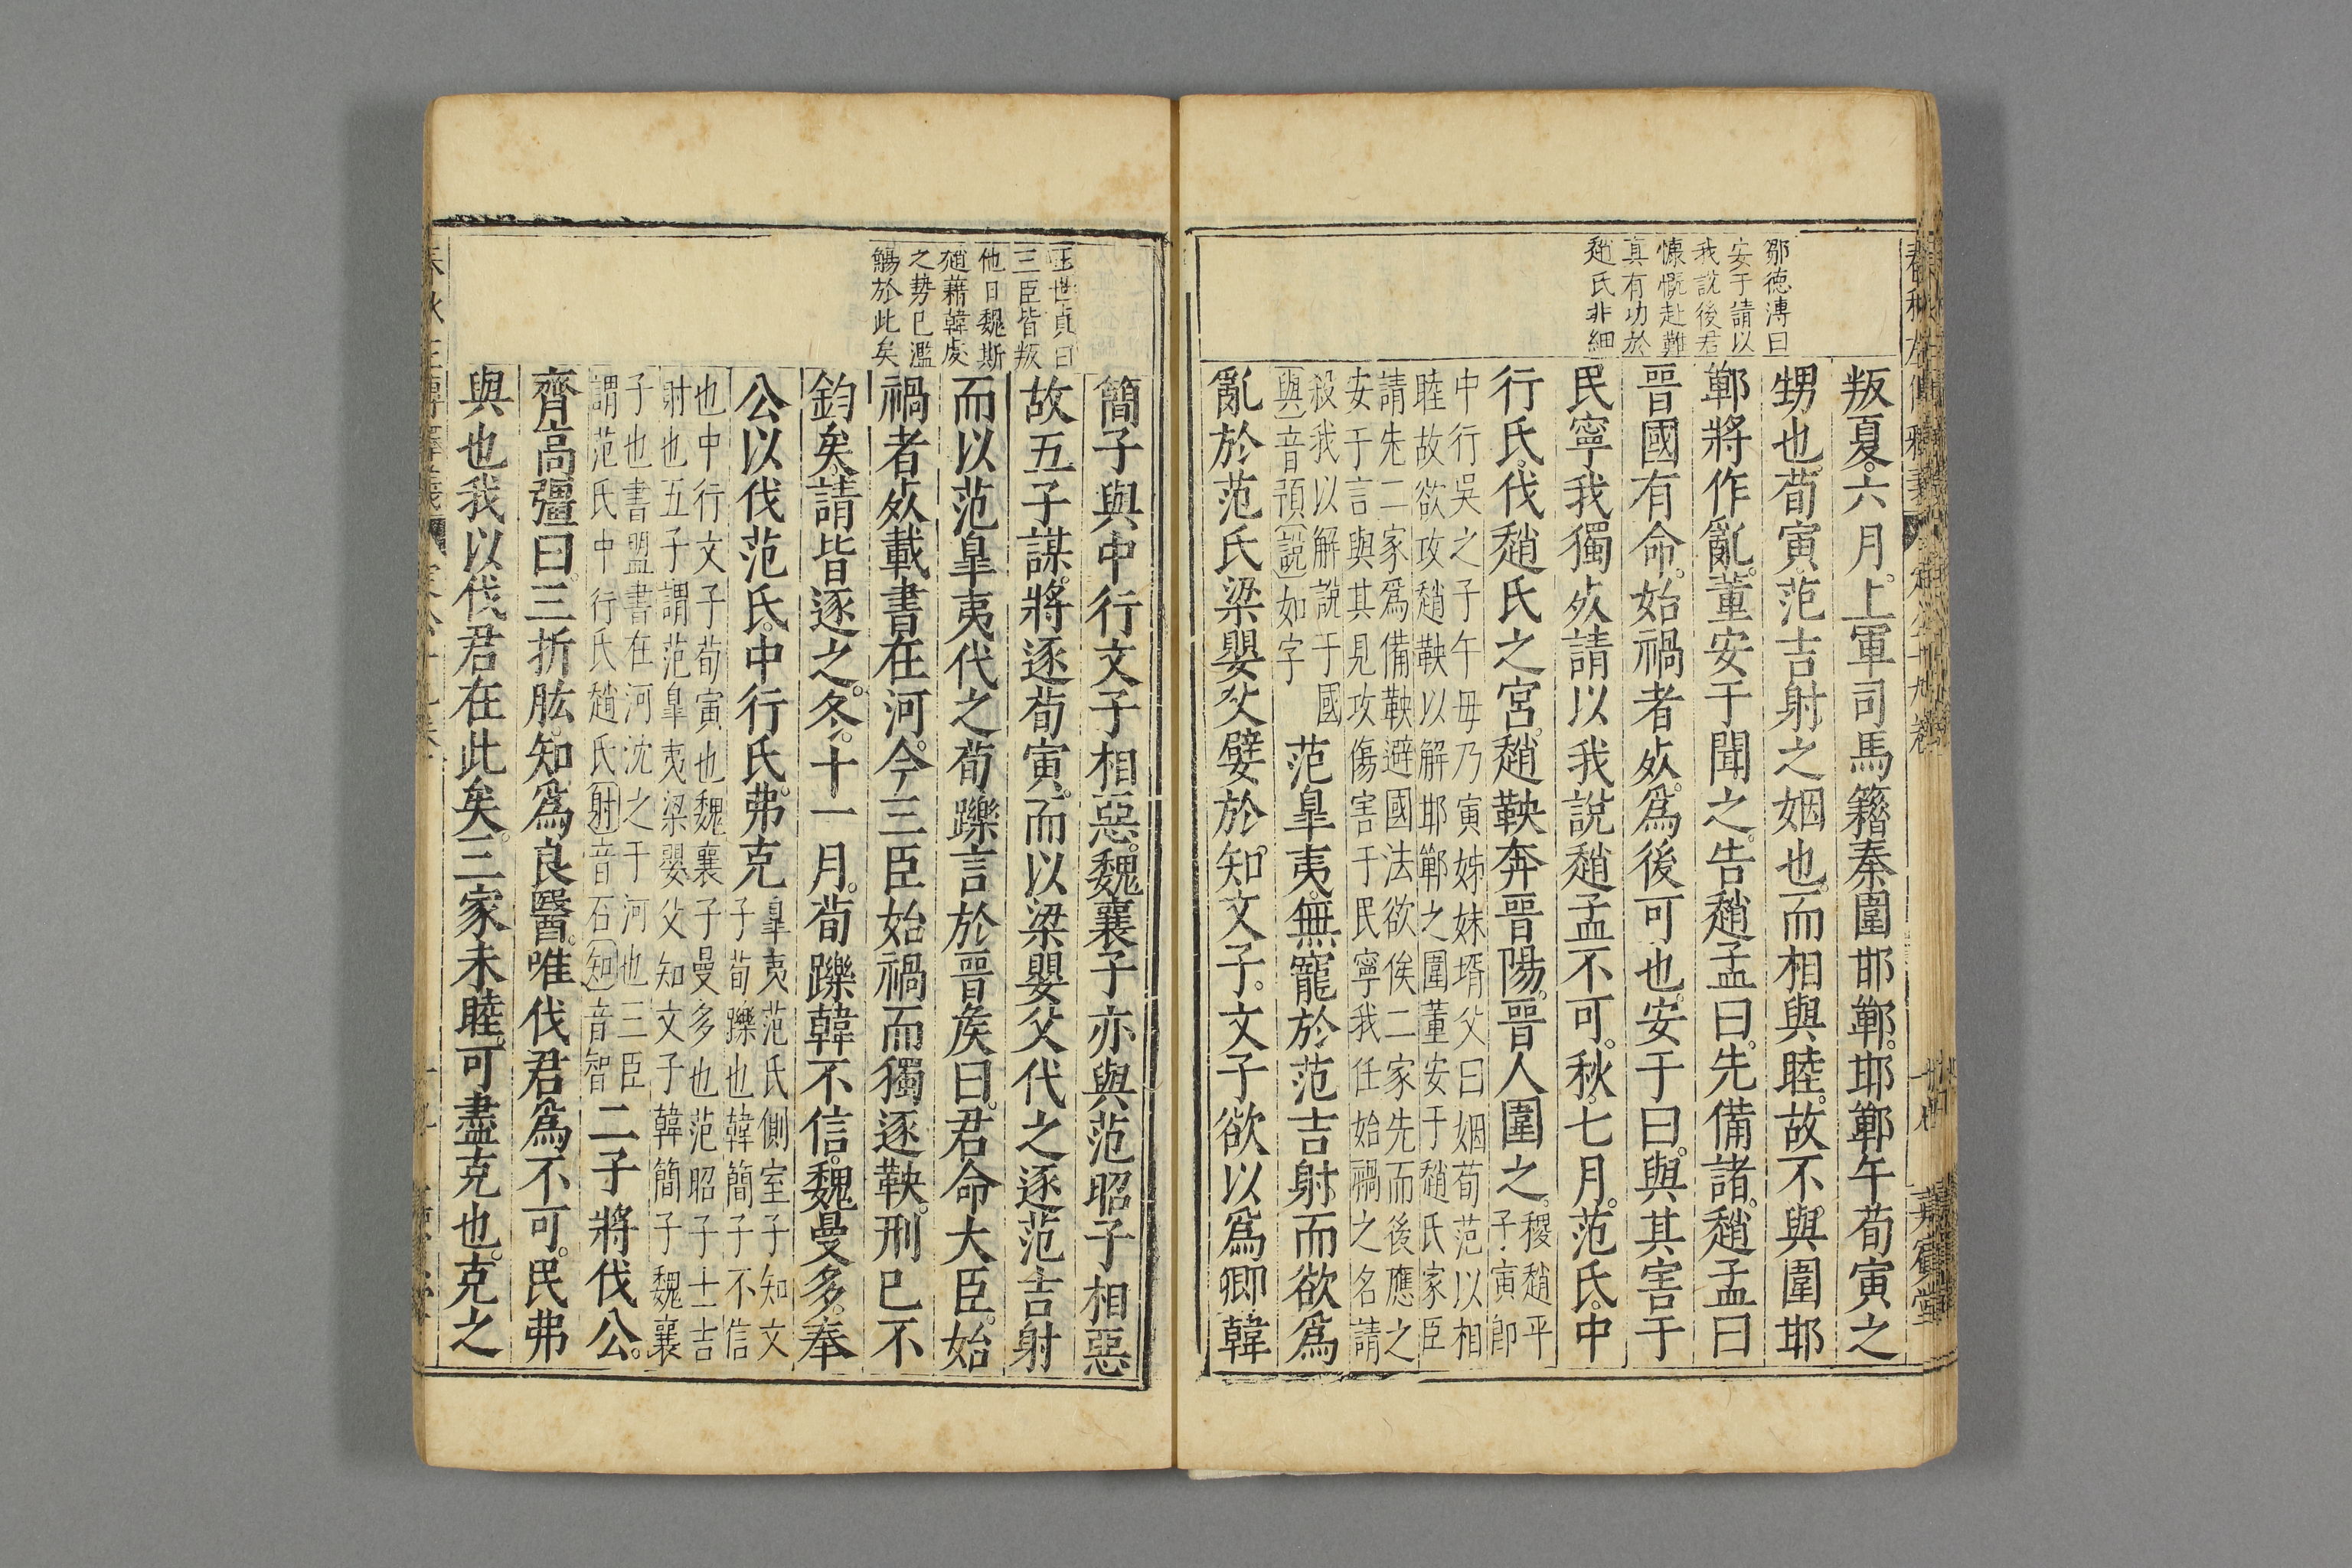 鄒德溥曰
安于請以
我說後君
慷慨赴難
真有功於
趙氏非細
叛夏六月上軍司馬籍秦圍邯鄲邯鄲午荀寅之
甥也荀寅范吉射之姻也而相與睦故不與圍邯
鄲將作亂董安于聞之告趙孟曰先備諸趙孟曰
晉國有命始禍者死爲後可也安于曰與其害于
民寧我獨死請以我說趙孟不可秋七月范氏中
行氏伐趙氏之宮趙鞅奔晉陽晉人圍之稷趙平
子寅卽
中行吳之子午毋乃寅姊妹壻父曰姻荀范以相
睦故欲攻趙鞅以解邯鄲之圍董安于趙氏家臣
請先二家爲備鞅避國法欲俟二家先而後應之
安于言與其見攻傷害于民寧我任始禍之名請
殺我以解說于國
與音預說如字
范臯夷無寵於范吉射而欲爲
亂於范氏梁嬰父嬖於知文子文子欲以爲卿韓
王世貞曰
三臣皆叛
他日魏斯
趙藉韓虔
之勢已濫
觴於此矣
簡子與中行文子相惡魏襄子亦與范昭子相惡
故五子謀將逐荀寅而以梁嬰父代之逐范吉射
而以范臯夷代之荀躒言於晉矦曰君命大臣始
禍者死載書在河今三臣始禍而獨逐鞅刑已不
鈞矣請皆逐之冬十一月荀躒韓不信魏曼多奉
公以伐范氏中行氏弗克
臯夷范氏側室子知文
子荀躒也韓簡子不信
也中行文子荀寅也魏襄子曼多也范昭子士吉
射也五子謂范臯夷梁嬰父知文子韓簡子魏襄
子也書盟書在河沈之于河也三臣
謂范氏中行氏趙氏射音石知音智
二子將伐公
齊高彊曰三折肱知爲良醫唯伐君爲不可民弗
與也我以伐君在此矣三家未睦可盡克也克之